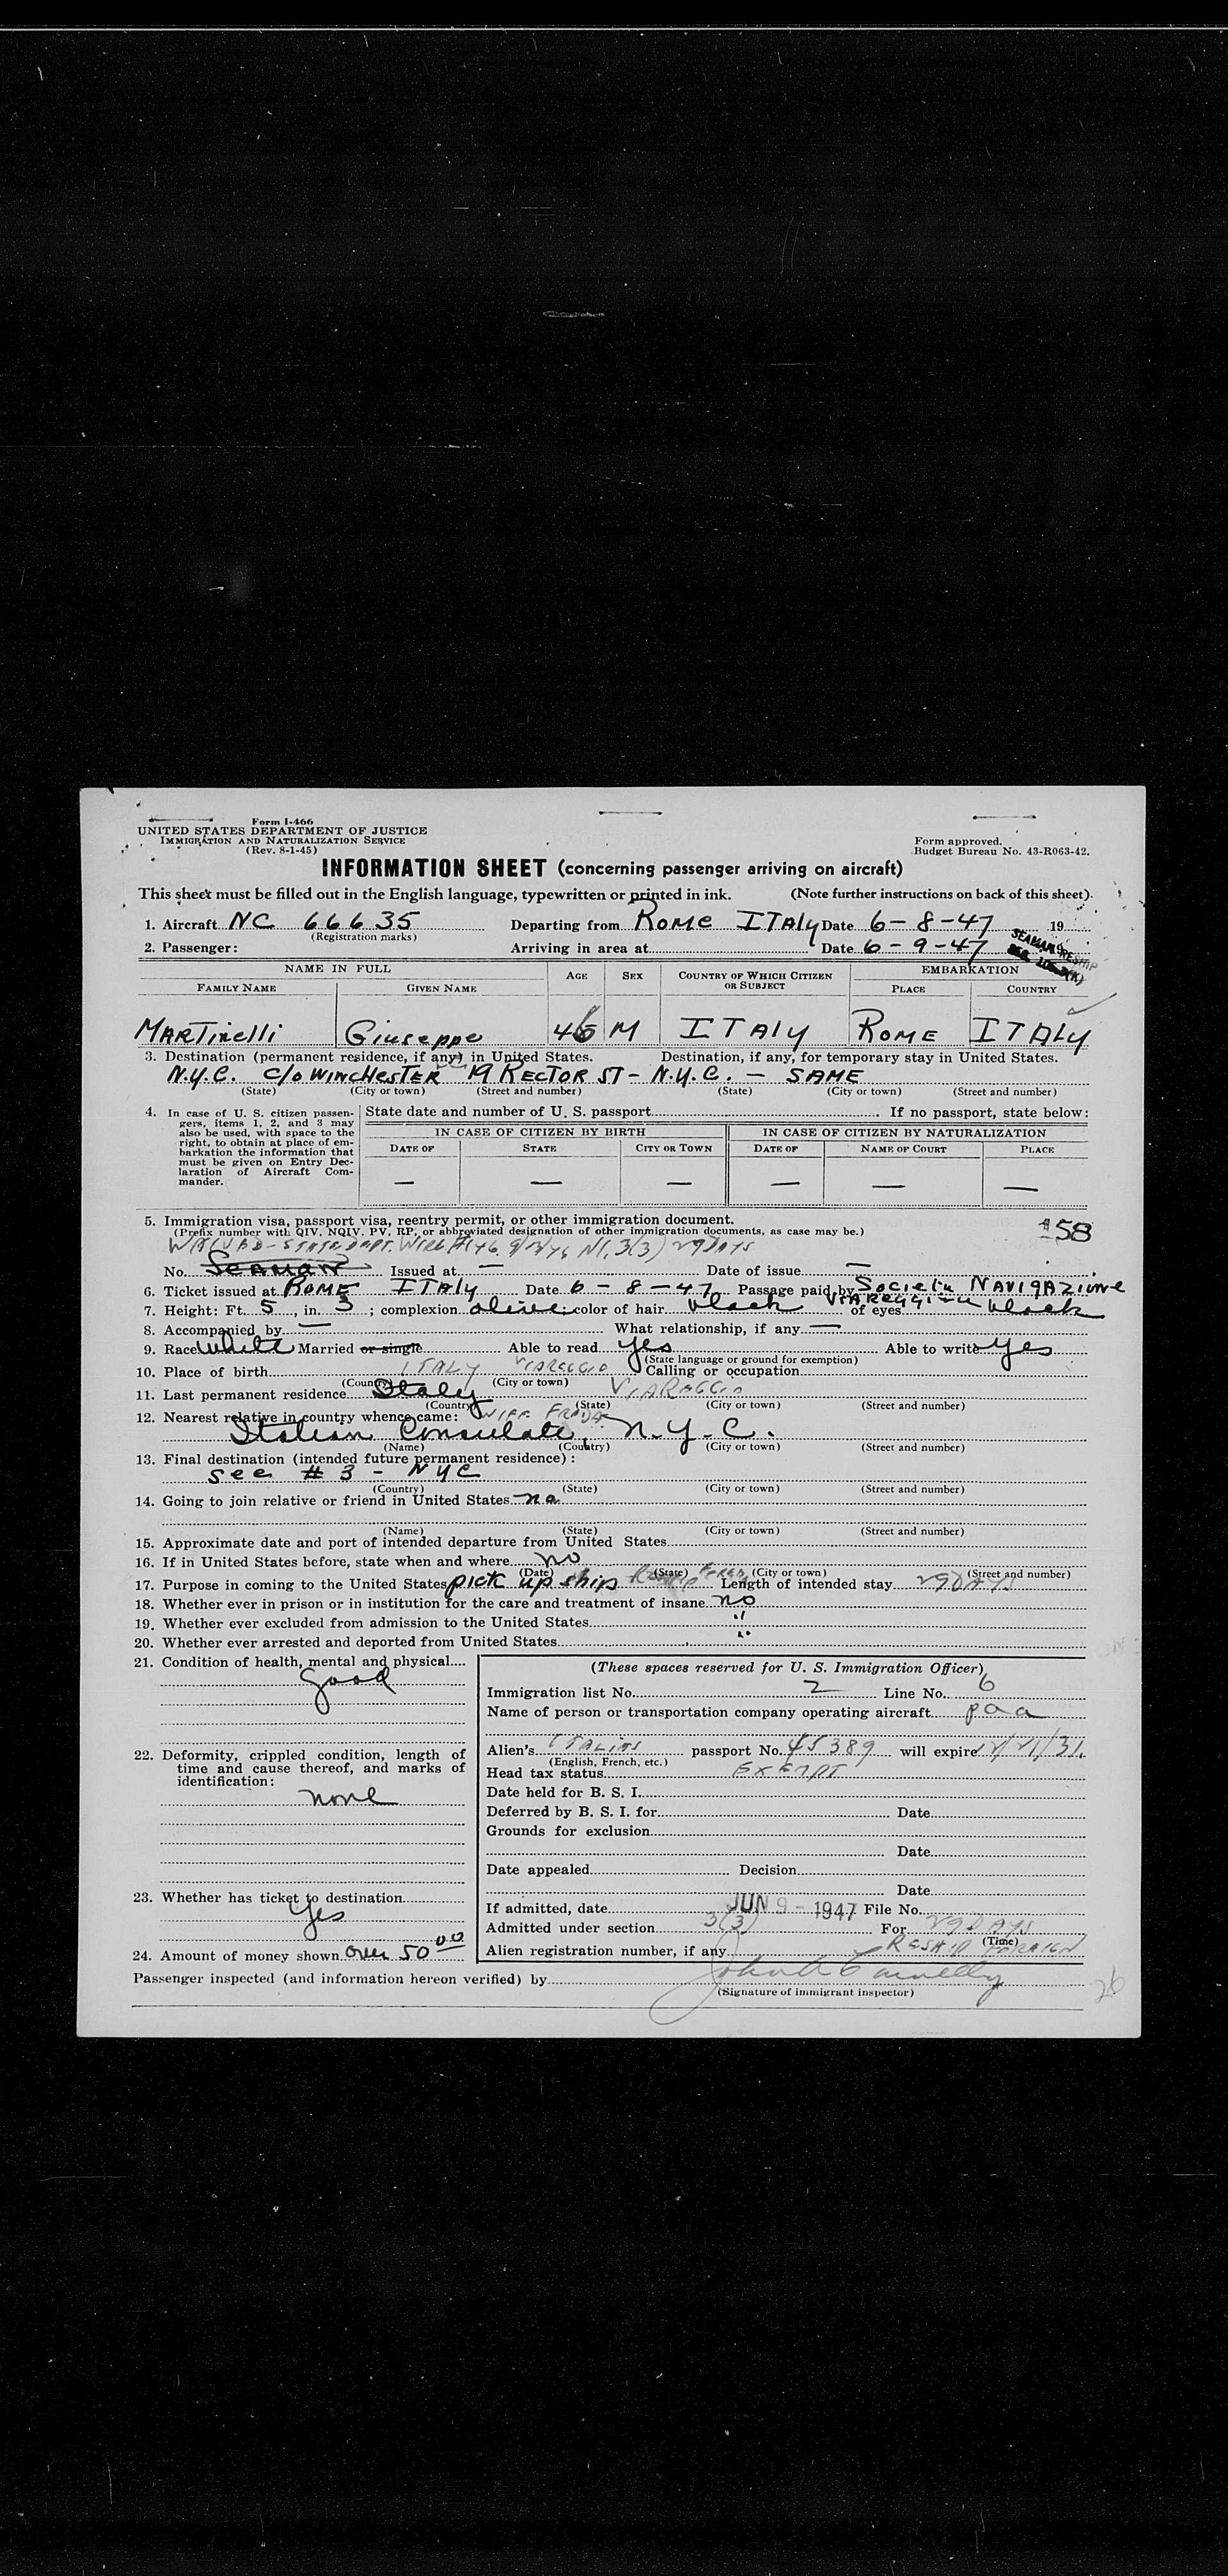 Form I-466
UNITED STATES DEPARTMENT OF JUSTICE
IMMIGRATION AND NATURALIZATION SERVICE
(Rev. 8-1-45)
Form approved.
Budget Bureau No. 43-R063-42.
INFORMATION SHEET (concerning passenger arriving on aircraft)
This sheet must be filled out in the English language, typewritten or printed in ink. (Note further instructions on back of this sheet).
1. Aircraft NC 66635 Departing from ROME ITALY Date 6-8-47 19
(Registration marks)
2. Passenger: Arriving in area at Date 6-9-47
SEAMAN RESHIP
NAME IN FULL AGE SEX COUNTRY OF WHICH CITIZEN OR SUBJECT EMBARKATION
FAMILY NAME GIVEN NAME PLACE COUNTRY
MARTinelli Giuseppe 46 M ITALY ROME ITALY
3. Destination (permanent residence, if any) in United States. Destination, if any, for temporary stay in United States.
N.Y.C. c/o WINCHESTER 19 RECTOR ST - N.Y.C. - SAME
(State) (City or town) (Street and number) (State) (City or town) (Street and number)
4. In case of U. S. citizen passengers, items 1, 2, and 3 may also be used, with space to the right, to obtain at place of embarkation the information that must be given on Entry Declaration of Aircraft Commander.
State date and number of U. S. passport If no passport, state below:
IN CASE OF CITIZEN BY BIRTH IN CASE OF CITIZEN BY NATURALIZATION
DATE OF STATE CITY OR TOWN DATE OF NAME OF COURT PLACE
— — — — — —
5. Immigration visa, passport visa, reentry permit, or other immigration document.
(Prefix number with QIV, NQIV, PV, RP, or abbreviated designation of other immigration documents, as case may be.)
58
WAIVED - STATE DEPT. WIRE 3(3) 29 DAYS
No. Seaman Issued at — Date of issue —
6. Ticket issued at ROME ITALY Date 6-8-47 Passage paid by Societa NAVIGAZIONE
VIAREGGINA
7. Height: Ft. 5, in. 3; complexion olive; color of hair black of eyes black
8. Accompanied by — What relationship, if any —
9. Race White Married or single Able to read yes Able to write yes
(State language or ground for exemption)
10. Place of birth ITALY VIAREGGIO Calling or occupation
(Country) (City or town)
11. Last permanent residence Italy VIAREGGIO
(Country) (State) (City or town) (Street and number)
12. Nearest relative in country whence came: WIFE
Italian Consulate, N.Y.C.
(Name) (Country) (City or town) (Street and number)
13. Final destination (intended future permanent residence):
see # 3 - NYC
(Country) (State) (City or town) (Street and number)
14. Going to join relative or friend in United States no
(Name) (State) (City or town) (Street and number)
15. Approximate date and port of intended departure from United States
16. If in United States before, state when and where no
(Date) (State) (City or town) (Street and number)
17. Purpose in coming to the United States pick up ship Length of intended stay 29 DAYS
18. Whether ever in prison or in institution for the care and treatment of insane no
19. Whether ever excluded from admission to the United States "
20. Whether ever arrested and deported from United States "
21. Condition of health, mental and physical
good
22. Deformity, crippled condition, length of time and cause thereof, and marks of identification:
none
23. Whether has ticket to destination
Yes
24. Amount of money shown over 50 00
(These spaces reserved for U. S. Immigration Officer)
Immigration list No. 2 Line No. 6
Name of person or transportation company operating aircraft paa
Alien's ITALIAN passport No. 45389 will expire
(English, French, etc.)
Head tax status EXEMPT
Date held for B. S. I.
Deferred by B. S. I. for Date
Grounds for exclusion
Date
Date appealed Decision
Date
If admitted, date JUN 9 - 1947 File No.
Admitted under section 3(3) For 29 DAYS
(Time)
Alien registration number, if any RESHIP FOREIGN
Passenger inspected (and information hereon verified) by
(Signature of immigrant inspector)
26